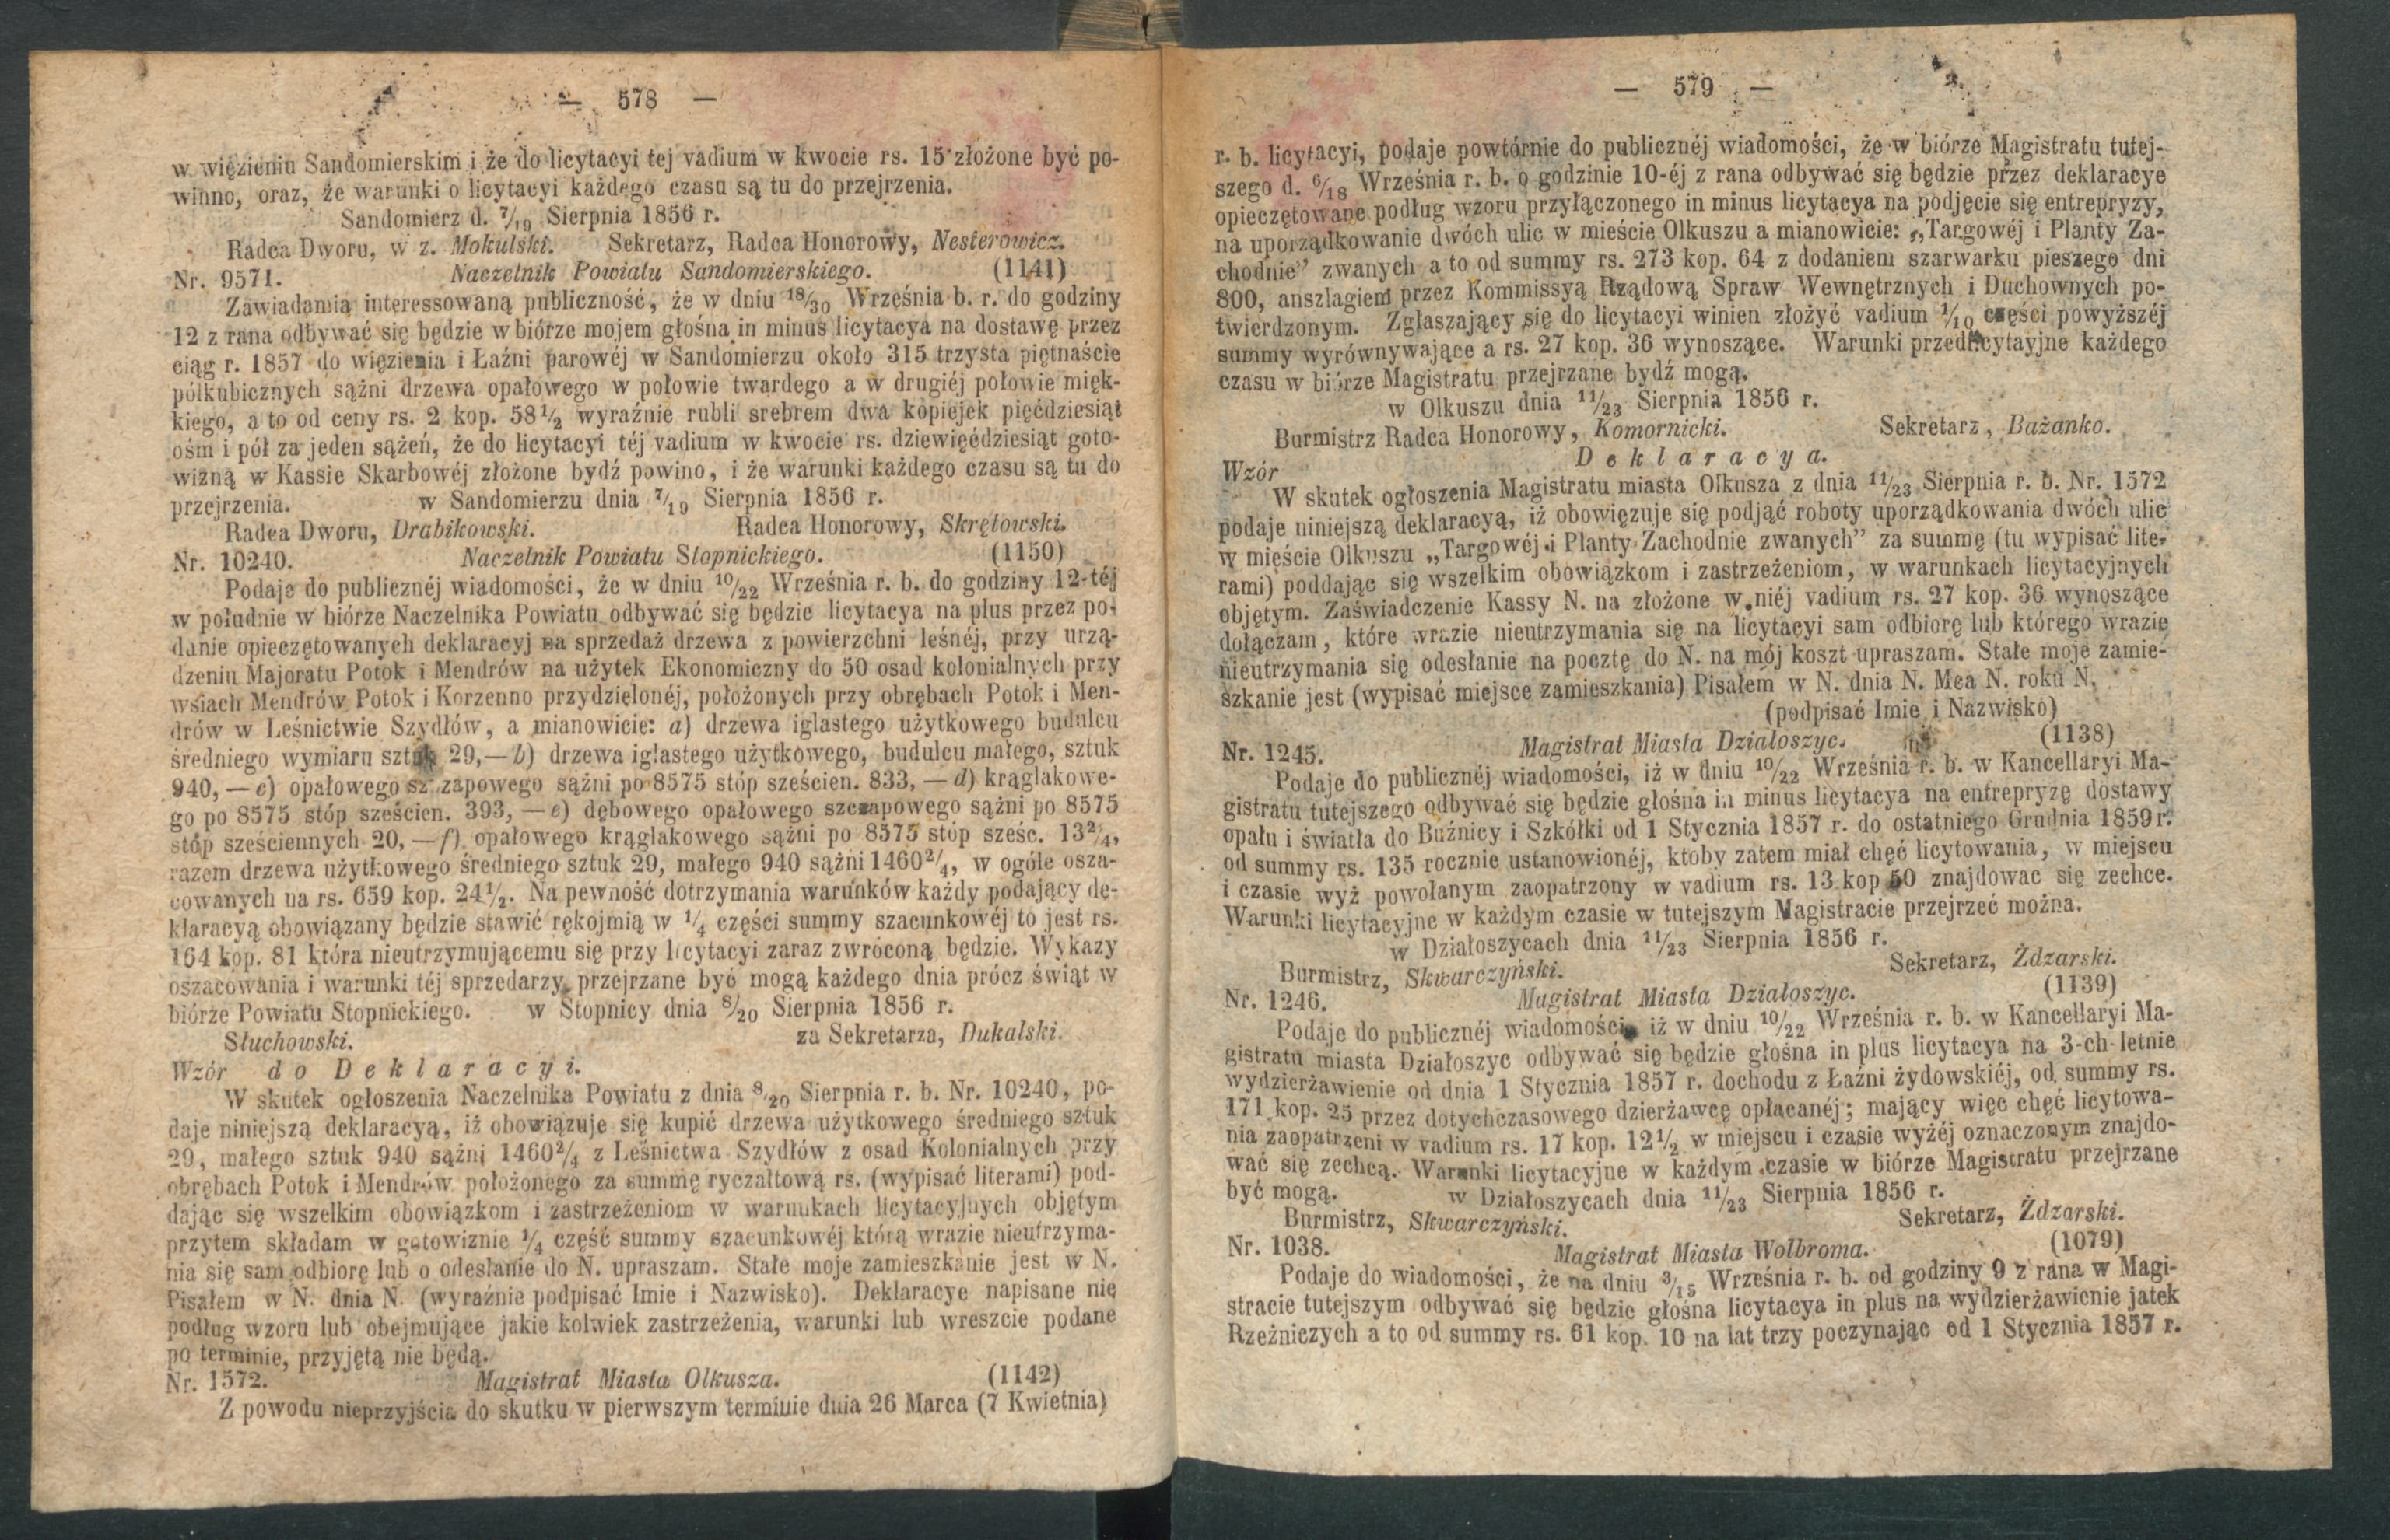 — 578 —
w więzieniu Sandomierskim i że do licytacyi tej vadium w kwocie rs. 15 złożone być po-
winno, oraz, że warunki o licytacyi każdego czasu są tu do przejrzenia.
Sandomierz d. 7/19 Sierpnia 1856 r.
Radca Dworu, w z. Mokulski. Sekretarz, Radca Honorowy, Nesterowicz.
Nr. 9571. Naczelnik Powiatu Sandomierskiego. (1141)
Zawiadamią interessowaną publiczność, że w dniu 18/30 Września b. r. do godziny
12 z rana odbywać się będzie w biórze mojem głośna in minus licytacya na dostawę przez
ciąg r. 1857 do więzienia i Łaźni parowéj w Sandomierzu około 315 trzysta piętnaście
półkubicznych sążni drzewa opałowego w połowie twardego a w drugiéj połowie mięk-
kiego, a to od ceny rs. 2 kop. 58 1/2 wyraźnie rubli srebrem dwa kopiejek pięćdziesiąt
ośm i pół za jeden sążeń, że do licytacyi téj vadium w kwocie rs. dziewięćdziesiąt goto-
wizną w Kassie Skarbowéj złożone bydź powino, i że warunki każdego czasu są tu do
przejrzenia. w Sandomierzu dnia 7/19 Sierpnia 1856 r.
Radca Dworu, Drabikowski. Radca Honorowy, Skrętowski.
Nr. 10240. Naczelnik Powiatu Stopnickiego. (1150)
Podaje do publicznéj wiadomości, że w dniu 10/22 Września r. b. do godziny 12-téj
w południe w biórze Naczelnika Powiatu odbywać się będzie licytacya na plus przez po-
danie opieczętowanych deklaracyj na sprzedaż drzewa z powierzchni leśnéj, przy urzą-
dzeniu Majoratu Potok i Mendrów na użytek Ekonomiczny do 50 osad kolonialnych przy
wsiach Mendrów Potok i Korzenno przydzielonéj, położonych przy obrębach Potok i Men-
drów w Leśnictwie Szydłów, a mianowicie: a) drzewa iglastego użytkowego budulcu
średniego wymiaru sztuk 29,— b) drzewa iglastego użytkowego, budulcu małego, sztuk
940, — c) opałowego szczapowego sążni po 8575 stóp sześcien. 833, — d) krąglakowe-
go po 8575 stóp sześcien. 393, — e) dębowego opałowego szczapowego sążni po 8575
stóp sześciennych 20, — f) opałowego krąglakowego sążni po 8575 stóp sześc. 13 2/4,
razem drzewa użytkowego średniego sztuk 29, małego 940 sążni 1460 2/4, w ogóle osza-
cowanych na rs. 659 kop. 24 1/2. Na pewność dotrzymania warunków każdy podający de-
klaracyą obowiązany będzie stawić rękojmią w 1/4 części summy szacunkowéj to jest rs.
164 kop. 81 która nieutrzymującemu się przy licytacyi zaraz zwróconą będzie. Wykazy
oszacowania i warunki téj sprzedarzy przejrzane być mogą każdego dnia prócz świąt w
biórze Powiatu Stopnickiego. w Stopnicy dnia 8/20 Sierpnia 1856 r.
Słuchowski. za Sekretarza, Dukalski.
Wzór do Deklaracyi.
W skutek ogłoszenia Naczelnika Powiatu z dnia 8/20 Sierpnia r. b. Nr. 10240, po-
daje niniejszą deklaracyą, iż obowiązuje się kupić drzewa użytkowego średniego sztuk
29, małego sztuk 940 sążni 1460 2/4 z Leśnictwa Szydłów z osad Kolonialnych przy
obrębach Potok i Mendrów położonego za summę ryczałtową rs. (wypisać literami) pod-
dając się wszelkim obowiązkom i zastrzeżeniom w warunkach licytacyjnych objętym
przytem składam w gotowiznie 1/4 część summy szacunkowéj którą wrazie nieutrzyma-
nia się sam odbiorę lub o odesłanie do N. upraszam. Stałe moje zamieszkanie jest w N.
Pisałem w N. dnia N. (wyraźnie podpisać Imie i Nazwisko). Deklaracye napisane nie
podług wzoru lub obejmujące jakie kolwiek zastrzeżenia, warunki lub wreszcie podane
po terminie, przyjętą nie będą.
Nr. 1572. Magistrat Miasta Olkusza. (1142)
Z powodu nieprzyjścia do skutku w pierwszym terminie dnia 26 Marca (7 Kwietnia)
— 579 —
r. b. licytacyi, podaje powtórnie do publicznéj wiadomości, że w biórze Magistratu tutej-
szego d. 6/18 Września r. b. o godzinie 10-éj z rana odbywać się będzie przez deklaracye
opieczętowane podług wzoru przyłączonego in minus licytacya na podjęcie się entrepryzy,
na uporządkowanie dwóch ulic w mieście Olkuszu a mianowicie: „Targowéj i Planty Za-
chodnie” zwanych a to od summy rs. 273 kop. 64 z dodaniem szarwarku pieszego dni
800, anszlagiem przez Kommissyą Rządową Spraw Wewnętrznych i Duchownych po-
twierdzonym. Zgłaszający się do licytacyi winien złożyć vadium 1/10 części powyższéj
summy wyrównywające a rs. 27 kop. 36 wynoszące. Warunki przedlicytayjne każdego
czasu w biórze Magistratu przejrzane bydź mogą.
w Olkuszu dnia 11/23 Sierpnia 1856 r.
Burmistrz Radca Honorowy, Komornicki. Sekretarz, Bażanko.
Wzór Deklaracya.
W skutek ogłoszenia Magistratu miasta Olkusza z dnia 11/23 Sierpnia r. b. Nr. 1572
podaje niniejszą deklaracyą, iż obowięzuje się podjąć roboty uporządkowania dwóch ulic
w mieście Olkuszu „Targowéj i Planty Zachodnie zwanych” za summę (tu wypisać lite-
rami) poddając się wszelkim obowiązkom i zastrzeżeniom, w warunkach licytacyjnych
objętym. Zaświadczenie Kassy N. na złożone w niéj vadium rs. 27 kop. 36 wynoszące
dołączam, które wrazie nieutrzymania się na licytacyi sam odbiorę lub którego wrazie
nieutrzymania się odesłanie na pocztę do N. na mój koszt upraszam. Stałe moje zamie-
szkanie jest (wypisać miejsce zamieszkania) Pisałem w N. dnia N. Mca N. roku N.
(podpisać Imie i Nazwisko)
Nr. 1245. Magistrat Miasta Działoszyc. (1138)
Podaje do publicznéj wiadomości, iż w dniu 10/22 Września r. b. w Kancellaryi Ma-
gistratu tutejszego odbywać się będzie głośna in minus licytacya na entrepryzę dostawy
opału i światła do Buźnicy i Szkółki od 1 Stycznia 1857 r. do ostatniego Grudnia 1859 r.
od summy rs. 135 rocznie ustanowionéj, ktoby zatem miał chęć licytowania, w miejscu
i czasie wyż powołanym zaopatrzony w vadium rs. 13 kop 50 znajdować się zechce.
Warunki licytacyjne w każdym czasie w tutejszym Magistracie przejrzeć można.
w Działoszycach dnia 11/23 Sierpnia 1856 r.
Burmistrz, Skwarczyński. Sekretarz, Żdzarski.
Nr. 1246. Magistrat Miasta Działoszyc. (1139)
Podaje do publicznéj wiadomości, iż w dniu 10/22 Września r. b. w Kancellaryi Ma-
gistratu miasta Działoszyc odbywać się będzie głośna in plus licytacya na 3-ch letnie
wydzierżawienie od dnia 1 Stycznia 1857 r. dochodu z Łaźni żydowskiéj, od summy rs.
171 kop. 25 przez dotychczasowego dzierżawcę opłacanéj; mający więc chęć licytowa-
nia zaopatrzeni w vadium rs. 17 kop. 12 1/2 w miejscu i czasie wyżéj oznaczonym znajdo-
wać się zechcą. Warunki licytacyjne w każdym czasie w biórze Magistratu przejrzane
być mogą. w Działoszycach dnia 11/23 Sierpnia 1856 r.
Burmistrz, Skwarczyński. Sekretarz, Żdzarski.
Nr. 1038. Magistrat Miasta Wolbroma. (1079)
Podaje do wiadomości, że na dniu 3/15 Września r. b. od godziny 9 z rana w Magi-
stracie tutejszym odbywać się będzie głośna licytacya in plus na wydzierżawienie jatek
Rzeźniczych a to od summy rs. 61 kop. 10 na lat trzy poczynając od 1 Stycznia 1857 r.